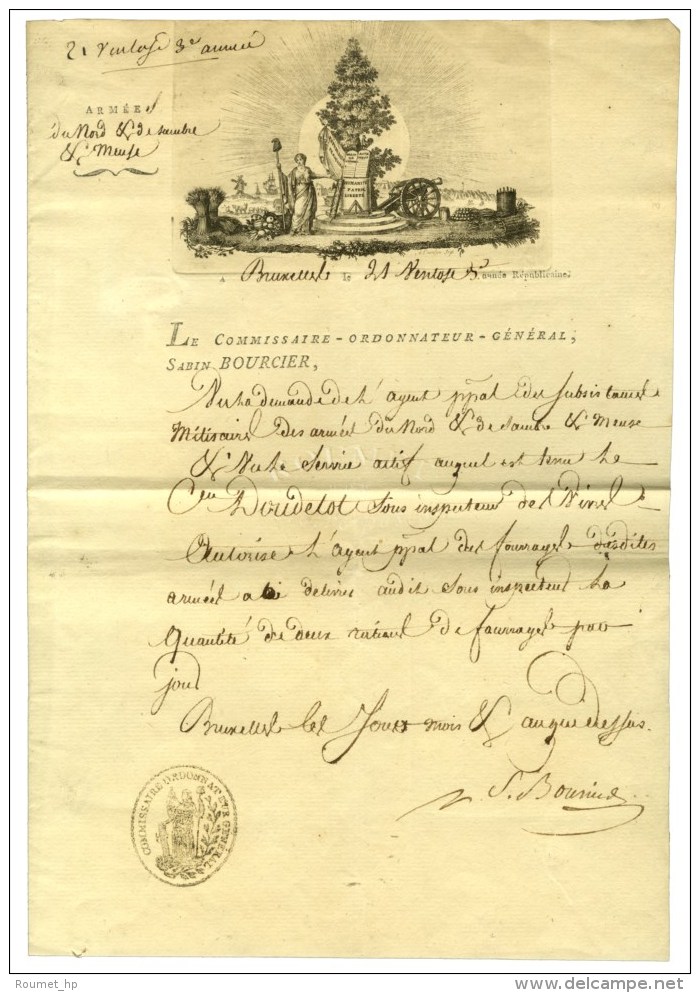 21 Ventose 3e année
ARMÉES
du Nord & de Sambre
& Meuse
HUMANITÉ
PATRIE
LIBERTÉ
A Bruxelles le 21 Ventose 3e année Républicaine.
LE COMMISSAIRE-ORDONNATEUR-GÉNÉRAL,
SABIN BOURCIER,
Vu la demande de l'agent ppal des subsistances
Militaires des armées du Nord & de Sambre & Meuse
& Vu le Service actif auquel est tenu le
Cen Doudelot Sous inspecteur des Vivres
Autorise l'agent ppal des fourrages desdites
armées a délivrer audit Sous inspecteur la
Quantité de deux rations de fourrages par
jour
Bruxelles les Jour mois & an que dessus.
S. Bourcier
COMMISSAIRE ORDONNATEUR GENERAL
Roumet_hp
delcampe.net